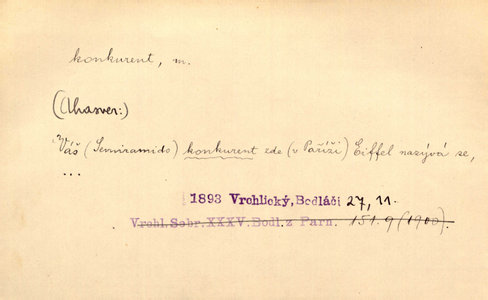 konkurent, m.
(Ahasver:)
"Váš (Semiramido) konkurent zde (v Paříži) Eiffel nazývá se,
...
1893 Vrchlický, Bodláčí 27, 11.
Vrchl. Sebr. XXXV. Bodl. z Parn. 151. 9 (1900).